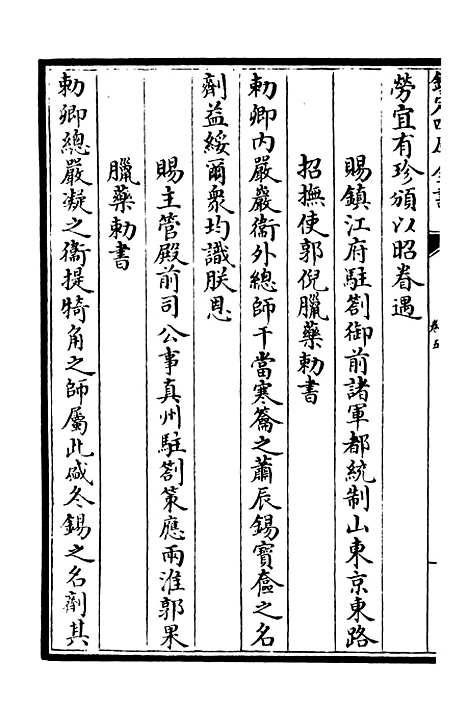 勞宜有珍頒以昭眷遇
賜鎮江府駐劄御前諸軍都統制山東京東路
招撫使郭倪臘藥勅書
勅卿內嚴巖衞外總師干當寒籥之蕭辰錫寳奩之名
劑益綏爾衆均識朕恩
賜主管殿前司公事真州駐劄策應兩淮郭果
臘藥勅書
勅卿總嚴凝之衞提犄角之師屬此咸冬錫之名劑其